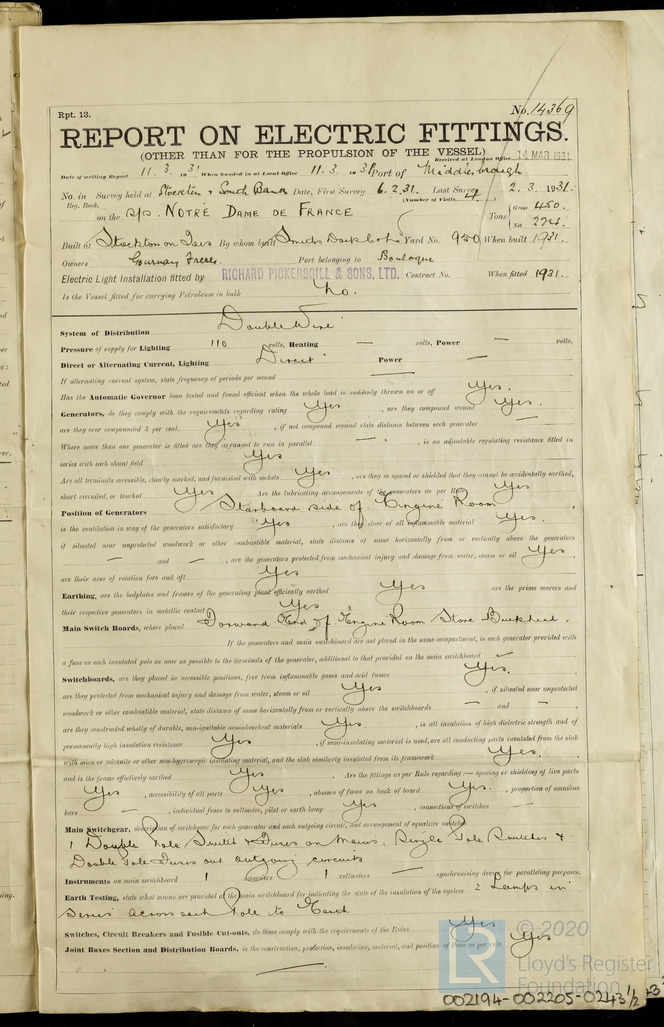 Rpt. 13.
No. 14369
REPORT ON ELECTRIC FITTINGS.
(OTHER THAN FOR THE PROPULSION OF THE VESSEL)
Received at London Office 14 MAR 1931
Date of writing Report 11. 3. 1931 When handed in at Local Office 11. 3. 1931 Port of Middlesbrough
No. in Survey held at Stockton & South Bank Date, First Survey 6.2.31. Last Survey 2. 3. 1931.
Reg. Book. (Number of Visits 4)
on the S/S. NOTRE DAME DE FRANCE Tons Gross 450. Net 224.
Built at Stockton on Tees By whom built Smiths Dock Co Ld Yard No. 950 When built 1931.
Owners Gournay Freres. Port belonging to Boulogne
Electric Light Installation fitted by RICHARD PICKERSGILL & SONS, LTD. Contract No. When fitted 1931.
Is the Vessel fitted for carrying Petroleum in bulk No.
System of Distribution Double Wire
Pressure of supply for Lighting 110 volts, Heating — volts, Power — volts,
Direct or Alternating Current, Lighting Direct Power —
If alternating current system, state frequency of periods per second —
Has the Automatic Governor been tested and found efficient when the whole load is suddenly thrown on or off Yes.
Generators, do they comply with the requirements regarding rating Yes, are they compound wound Yes.
are they over compounded 5 per cent. Yes, if not compound wound state distance between each generator —
Where more than one generator is fitted are they arranged to run in parallel —, is an adjustable regulating resistance fitted in
series with each shunt field Yes
Are all terminals accessible, clearly marked, and furnished with sockets Yes, are they so spaced or shielded that they cannot be accidentally earthed,
short circuited, or touched Yes Are the lubricating arrangements of the generators as per Rule Yes
Position of Generators Starboard side of Engine Room,
is the ventilation in way of the generators satisfactory Yes, are they clear of all inflammable material Yes.
if situated near unprotected woodwork or other combustible material, state distance of same horizontally from or vertically above the generators
— and —, are the generators protected from mechanical injury and damage from water, steam or oil Yes.
are their axes of rotation fore and aft Yes
Earthing, are the bedplates and frames of the generating plant efficiently earthed Yes are the prime movers and
their respective generators in metallic contact Yes
Main Switch Boards, where placed Forward End of Engine Room Store Bulkhead.
If the generators and main switchboard are not placed in the same compartment, is each generator provided with
a fuse on each insulated pole as near as possible to the terminals of the generator, additional to that provided on the main switchboard —
Switchboards, are they placed in accessible positions, free from inflammable gases and acid fumes Yes.
are they protected from mechanical injury and damage from water, steam or oil Yes, if situated near unprotected
woodwork or other combustible material, state distance of same horizontally from or vertically above the switchboards — and —
are they constructed wholly of durable, non-ignitable non-absorbent materials Yes, is all insulation of high dielectric strength and of
permanently high insulation resistance Yes, if semi-insulating material is used, are all conducting parts insulated from the slab
with mica or micanite or other non-hygroscopic insulating material, and the slab similarly insulated from its framework Yes.
and is the frame effectively earthed Yes. Are the fittings as per Rule regarding:— spacing or shielding of live parts
Yes, accessibility of all parts Yes, absence of fuses on back of board Yes., proportion of omnibus
bars —, individual fuses to voltmeter, pilot or earth lamp Yes, connections of switches —
Main Switchgear, description of switchgear for each generator and each outgoing circuit, and arrangement of equaliser switches
1 Double Pole Switch & Fuses on Mains, Single Pole Switches &
Double Pole Fuses out outgoing circuits
Instruments on main switchboard 1 ammeters 1 voltmeters — synchronising device for paralleling purposes.
Earth Testing, state what means are provided at the main switchboard for indicating the state of the insulation of the system 2 Lamps in
series across each Pole to Earth
Switches, Circuit Breakers and Fusible Cut-outs, do these comply with the requirements of the Rules Yes
Joint Boxes Section and Distribution Boards, is the construction, protection, insulation, material, and position of these as per rule Yes
© 2020
LR
Lloyd's Register
Foundation
002194-002205-0243 1/2